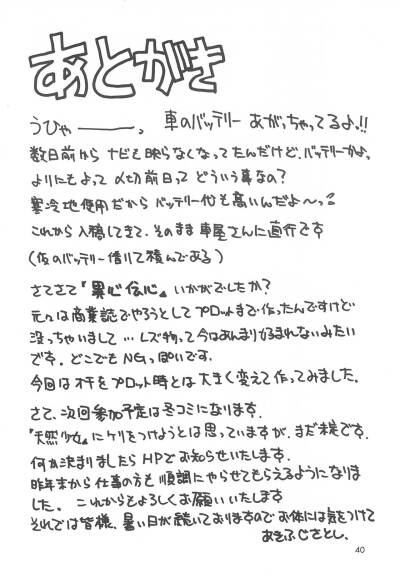 あとがき
うひゃ―――っ、車のバッテリーあがっちゃってるよ!!
数日前からナビも映らなくなってたんだけど、バッテリーかよ。
よりにもよって〆切前日ってどういう事なの?
寒冷地使用だからバッテリー代も高いんだよ〜っ
これから入稿してきて、そのまま車屋さんに直行です
(仮のバッテリー借りて積んである)
さてさて『異心伝心』いかがでしたか?
元々は商業誌でやろうとしてプロットまで作ったんですけど
没っちゃいまして…レズ物って今はあんまり好まれないみたい
です。どこでもNGっぽいです。
今回はオチをプロット時とは大きく変えて作ってみました。
さて、次回参加予定は冬コミになります。
『天然少女』にケリをつけようとは思っていますが、まだ未定です。
何か決まりましたらHPでお知らせいたします。
昨年末から仕事の方も順調にやらせてもらえるようになりま
した。これからもよろしくお願いいたします
それでは皆様、暑い日が続いておりますのでお体には気をつけて
あきふじさとし。
40